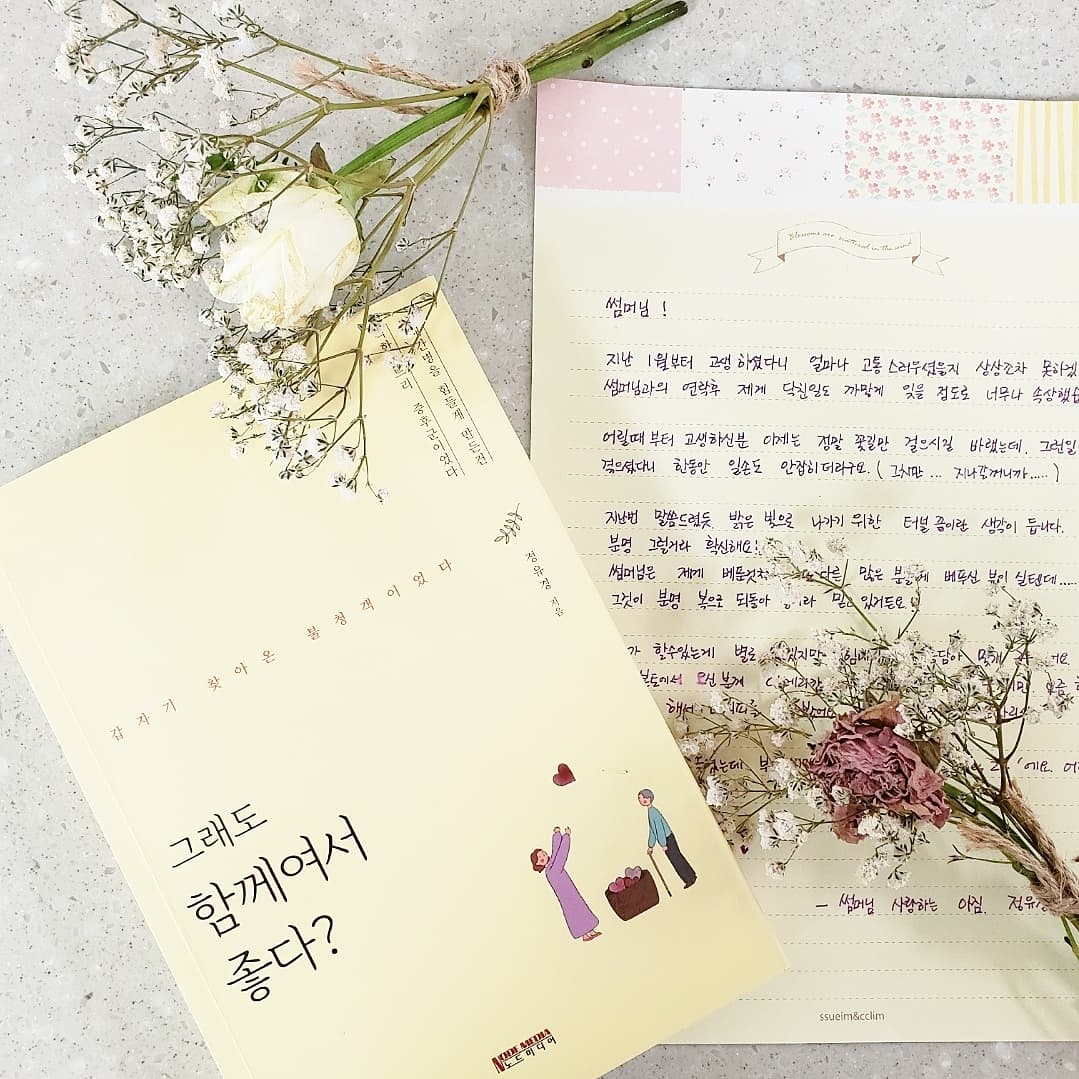 간병을 힘들게 만든건
증후군이었다
정유경 지음
갑자기 찾아온 불청객이었다
그래도
함께여서
좋다?
NODE MEDIA
노드미디어
Blossoms are scattered in the wind
썸머님 !
지난 1월부터 고생하셨다니 얼마나 고통스러우셨을지 상상조차 못하겠
썸머님과의 연락후 제게 닥친일도 까맣게 잊을 정도로 너무나 속상했
어릴때부터 고생하신분 이제는 정말 꽃길만 걸으시길 바랬는데, 그런일
겪으셨다니 한동안 일손도 안잡히더라구요. ( 그치만 ... 지나갈꺼니까..... )
지난번 말씀드렸듯 밝은 빛으로 나가기 위한 터널 쯤이란 생각이 듭니다.
분명 그럴거라 확신해요!
썸머님은 제게 베푼것처 다른 많은 분들께 베푸신 분이실텐데.....
그것이 분명 복으로 되돌아 라 믿고있거든요
가 할수있는게 별로
해서
는데
- 썸머님 사랑하는 아짐. 정유
ssueim&cclim